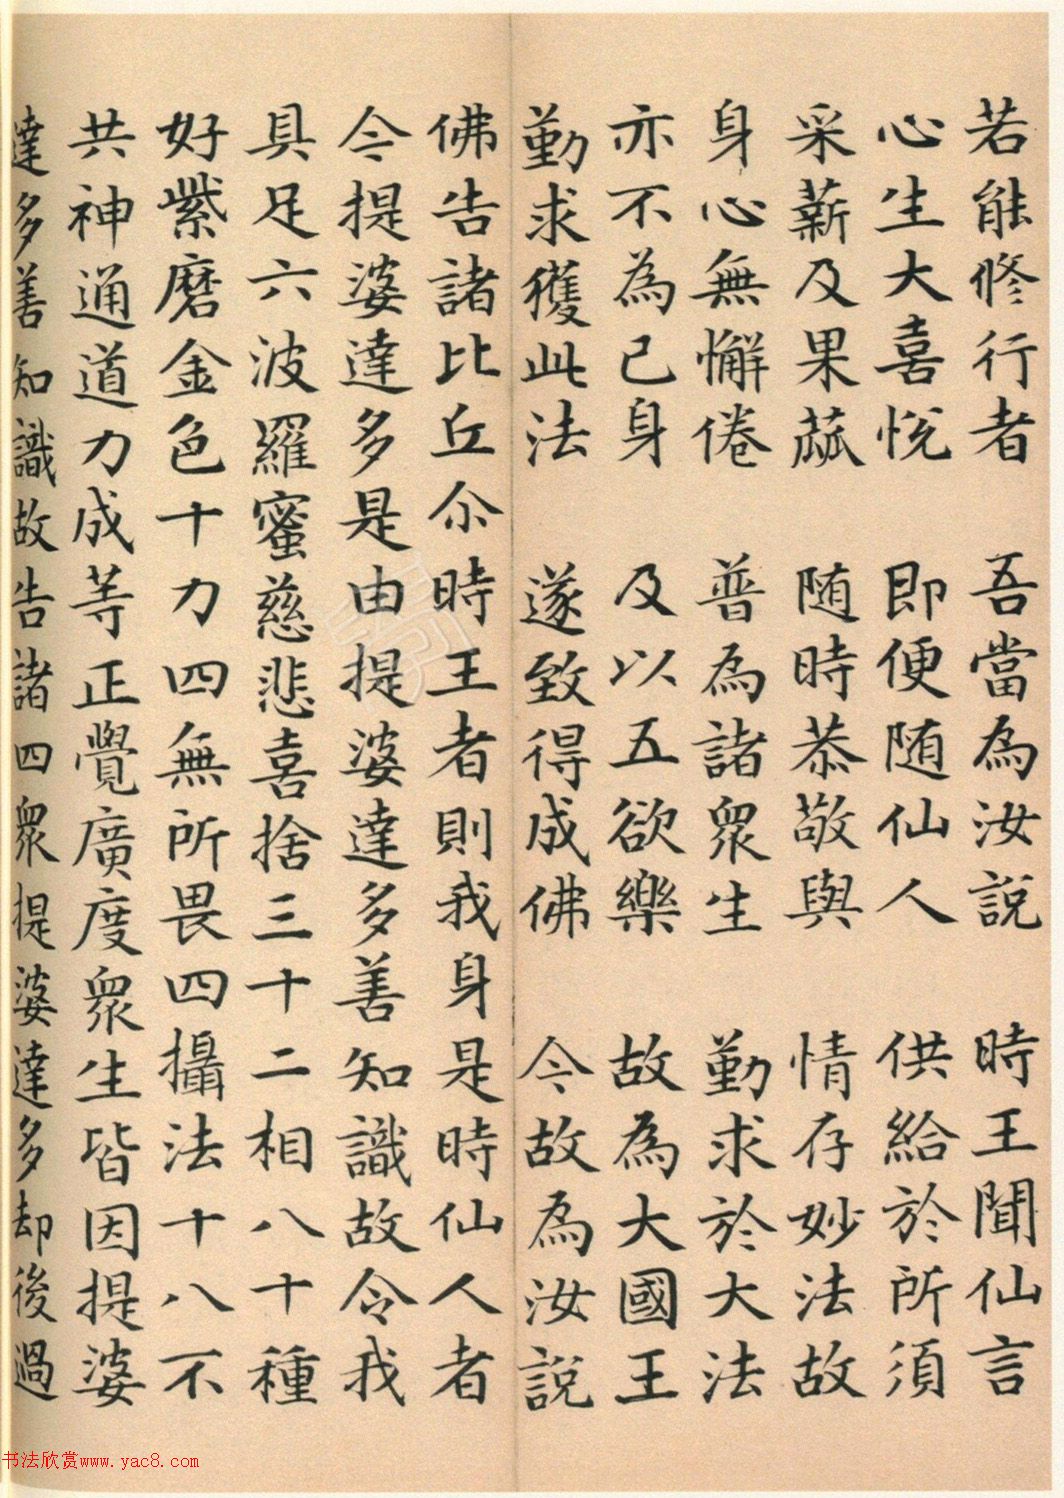 若能修行者 吾當為汝說 時王聞仙言
心生大喜悅 即便随仙人 供給於所須
采薪及果蓏 随時恭敬與 情存妙法故
身心無懈倦 普為諸眾生 勤求於大法
亦不為己身 及以五欲樂 故為大國王
勤求獲此法 遂致得成佛 今故為汝說
佛告諸比丘尒時王者則我身是時仙人者
今提婆達多是由提婆達多善知識故令我
具足六波羅蜜慈悲喜捨三十二相八十種
好紫磨金色十力四無所畏四攝法十八不
共神通道力成等正覺廣度眾生皆因提婆
達多善知識故告諸四眾提婆達多却後過
书法欣赏www.yac8.com